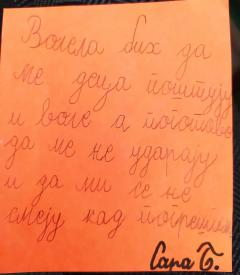 Волела бих да
ме деца поштују
и воле а поготово
да ме не ударају
и да ми се не
смеју кад погрешим
Сара Б.